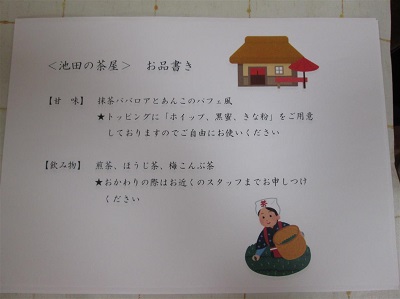 <池田の茶屋> お品書き
【甘　味】 抹茶ババロアとあんこのパフェ風
★トッピングに「ホイップ、黒蜜、きな粉」をご用意
しておりますのでご自由にお使いください
【飲み物】 煎茶、ほうじ茶、梅こんぶ茶
★おかわりの際はお近くのスタッフまでお申しつけ
ください